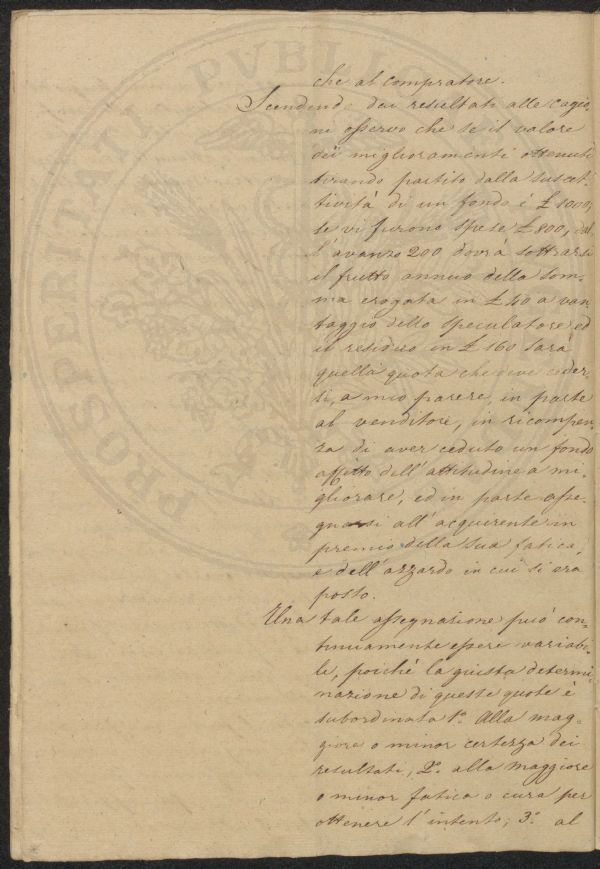 PROSPERITATI PVBLI
che al compratore.
Scendendo dai resultati alle cagio,
ni osservo che se il valore
dei miglioramenti ottenuti
tirando partito dalla suscet,
tività di un fondo è £ 1000,
se vi furono spese £ 800, dal,
l'avanzo 200 dovrà sottrarsi
il frutto annuo della som,
ma erogata in £ 40 a van
taggio dello speculatore ed
il residuo in £ 160 sarà
quella quota che deve ceder,
si, a mio parere, in parte
al venditore, in ricompen,
za di aver ceduto un fondo
affetto dell'attitudine a mi,
gliorare, ed in parte asse,
gnarsi all'acquirente in
premio della sua fatica,
e dell'azzardo in cui si era
posto.
Una tale assegnazione può con=
tinuamente essere variabi,
le, poichè la giusta determi,
nazione di queste quote è
subordinata 1.° Alla mag=
giore o minor certezza dei
resultati, 2.° alla maggiore
o minor fatica o cura per
ottenere l'intento; 3.° al